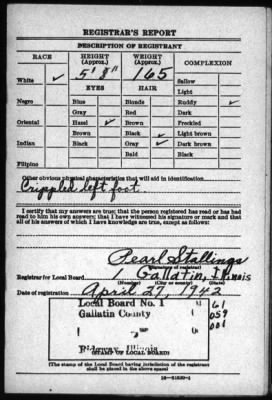 REGISTRAR'S REPORT
DESCRIPTION OF REGISTRANT
RACE HEIGHT (Approx.) WEIGHT (Approx.) COMPLEXION
5' 8" 165
White ✓ Sallow
EYES HAIR Light
Negro Blue Blonde Ruddy ✓
Gray Red Dark
Oriental Hazel ✓ Brown Freckled
Brown Black Light brown
Indian Black Gray ✓ Dark brown
Bald Black
Filipino
Other obvious physical characteristics that will aid in identification
Crippled left foot.
I certify that my answers are true; that the person registered has read or has had
read to him his own answers; that I have witnessed his signature or mark and that
all of his answers of which I have knowledge are true, except as follows:
Pearl Stallings
(Signature of registrar)
Registrar for Local Board 1 Gallatin, Illinois
(Number) (City or county) (State)
Date of registration April 27, 1942
Local Board No. 1 61
Gallatin County 059
001
Ridgway, Illinois
(STAMP OF LOCAL BOARD)
(The stamp of the Local Board having jurisdiction of the registrant
shall be placed in the above space)